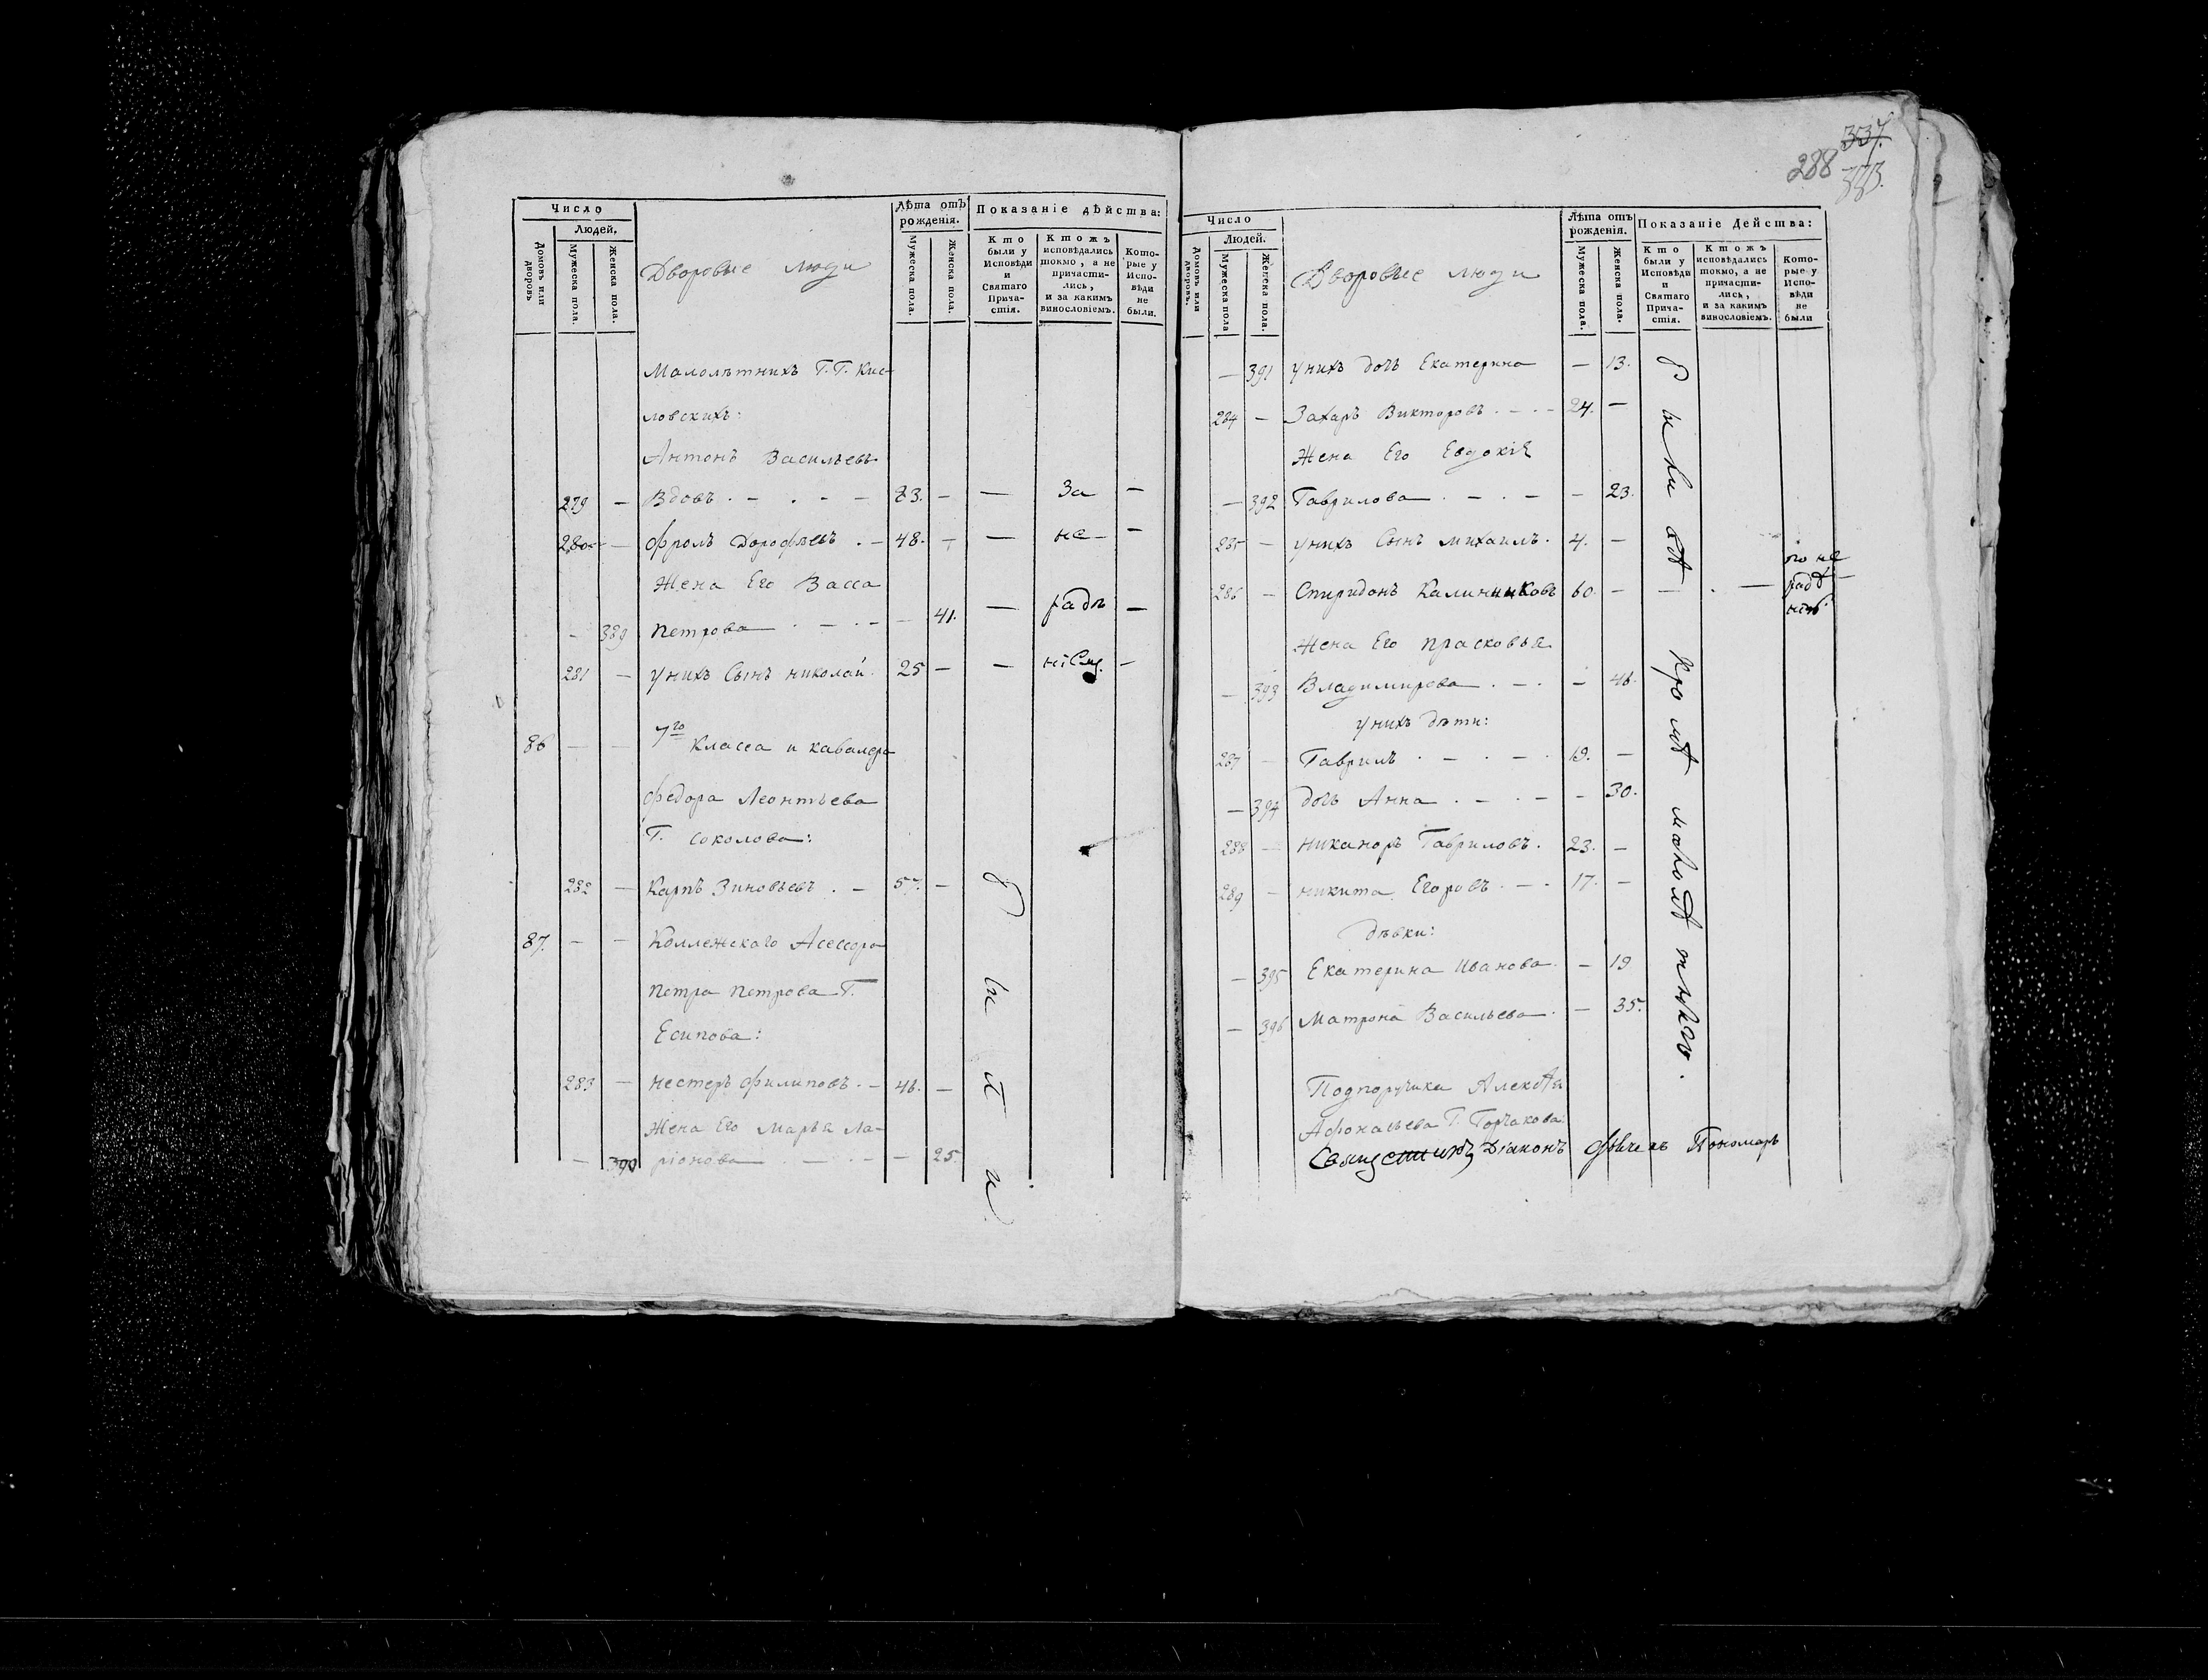 Число
Людей.
Домовъ или дворовъ
Мужеска пола.
Женска пола.
Дворовые люди
Лѣта отъ рожденія.
Мужеска пола.
Женска пола.
Показаніе дѣйства:
Кто были у Исповѣди и Святаго Прича-стія.
Ктожъ исповѣдались токмо, а не причасти-лись, и за какимъ винословіемъ.
Кото-рые у Испо-вѣди не были.
Малолѣтнихъ Г.Г. Кис-
ловскихъ:
Антонъ Васильевъ
279 — Вдовъ . — . — — 73. — — За —
280 — Фролъ Дорофѣевъ . — 48. — — не —
Жена Его Васса
— 389 Петрова — . — . — — 41. — радѣ —
281 — Унихъ Сынъ Николай 25 — — ніем. —
86 — — 7го Класса и кавалера
Федора Леонтьева
Г. Соколова:
282 — Карпъ Зиновьевъ . — 57. —
87. — — Коллежскаго Асессора
Петра Петрова Г.
Есипова:
283 — Нестеръ Филиповъ . — 46. —
Жена Его Марья Ла-
— 390 ріонова — — . — — 25.
были
288
337.
Число
Людей.
Домовъ или дворовъ.
Мужеска пола
Женска пола.
Дворовые люди
Лѣта отъ рожденія.
Мужеска пола.
Женска пола.
Показаніе Дейсmва:
Кто были у Исповѣди и Святаго Прича-стія.
Ктожъ исповѣдались токмо, а не причасти-лись, и за какимъ винословіемъ.
Кото-рые у Испо-вѣди не были
— 391 Унихъ дочь Екатерина — 13.
284 — Захаръ Викторовъ . — . — 24. —
Жена Его Евдокія
— 392 Гаврилова . — . — — 23.
285 — Унихъ Сынъ Михаилъ . 4. —
286 — Спиридонъ Калинниковъ 60 — — . — по не радѣ нію.
Жена Его Прасковья
— 393 Владимирова . — . — 46.
Унихъ дѣти:
287 — Гаврилъ . — . — . 19. —
— 394 дочь Анна . — . — — 30.
288 — Никаноръ Гавриловъ . 23. —
289 — Никита Егоровъ . — . 17. —
Дѣвки:
— 395 Екатерина Иванова — 19
— 396 Матрона Васильева . — 35.
Подпоручика Алексѣя
Афонасьева Г. Горчакова
Діаконъ Пономарь